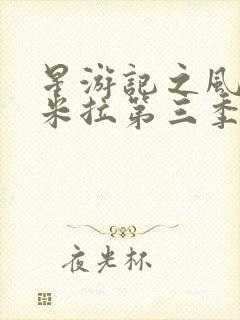 星游記之風
米拉第三季
夜光杯